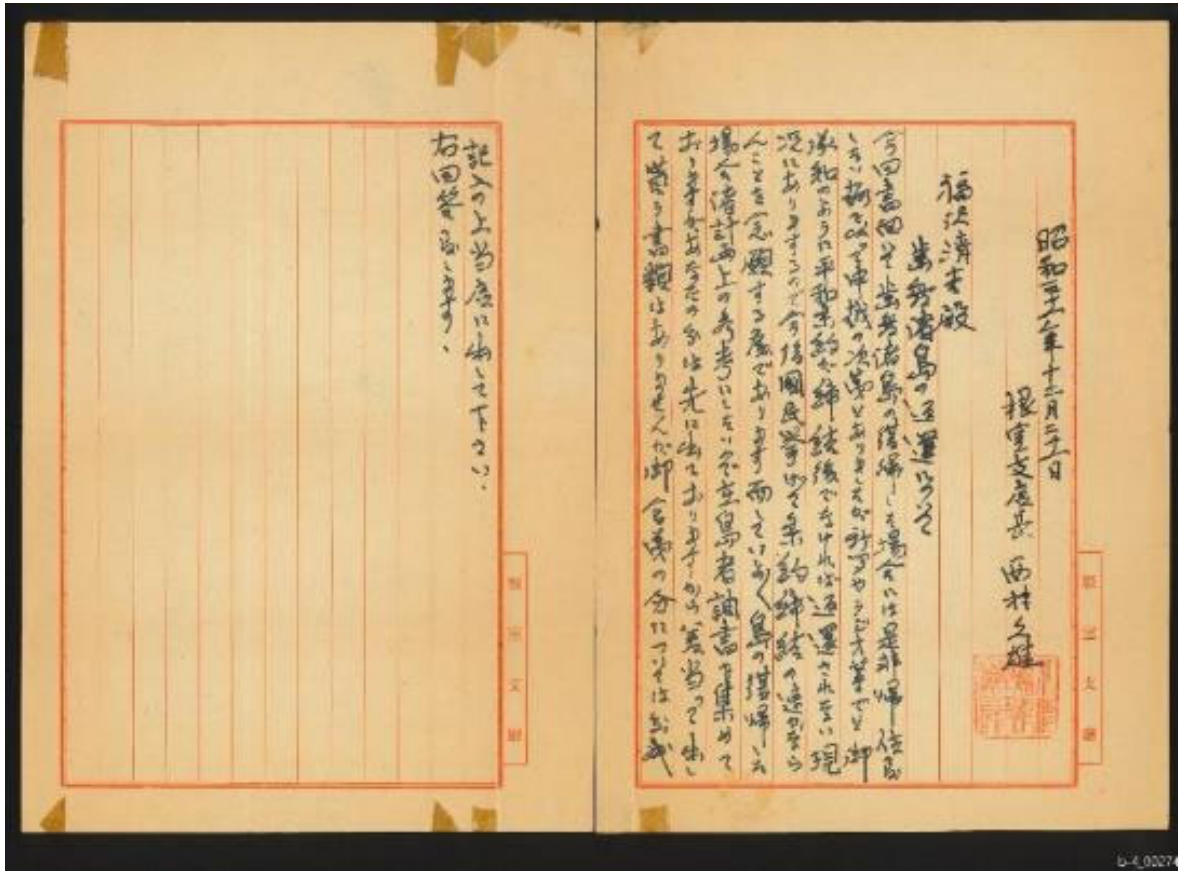 昭和 年十二月二十一日
根室支庁長 西村久雄
福沢清 殿
歯舞諸島の返還について
今回書面で歯舞諸島の復帰した場合には是非帰住致
したい趣 申越の次第とありましたが新聞やラジオ等でも御
承知のように平和条約が締結後でなければ返還されない現
況にありまするので今後国民挙げて条約締結の速かなら
んことを念願する処であります而していよいよ島の復帰した
場合の諸計画上の参考にしたいので在島者調書を集めて
おりますがあなたの分は先に出ておりますから差当って出し
て貰う書類はありませんが御 の分については
記入の上当庁に出して下さい、
右回答致します、